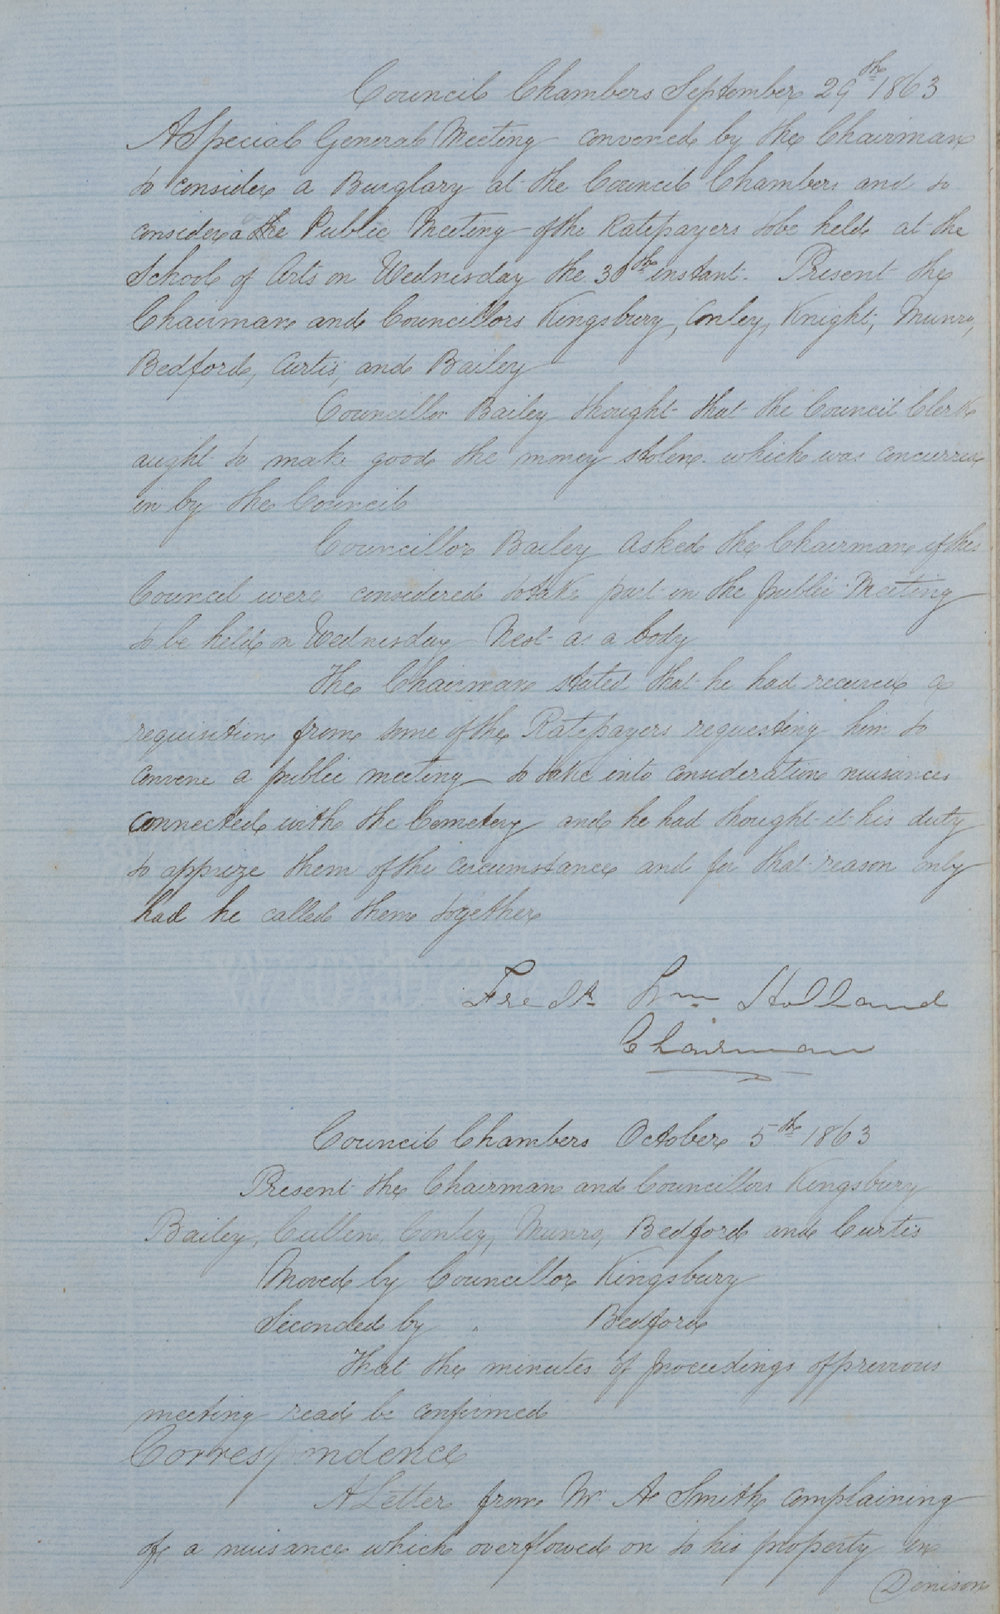 Council Chambers September 29th 1863
A Special General Meeting convened by the Chairman
to consider a Burglary at the Council Chambers and to
consider a the Public Meeting of the Ratepayers to be held at the
School of Arts on Wednesday the 30th instant. Present the
Chairman and Councillors Kingsbury, Conley, Knight, Munro,
Bedford, Curtis, and Bailey
Councillor Bailey thought that the Council Clerk
aught to make good the money stolen which was concurred
in by the Council
Councillor Bailey asked the Chairman if the
Council were considered to take part in the public Meeting
to be held on Wednesday Next as a body
The Chairman stated that he had received a
requisition from some of the Ratepayers requesting him to
convene a public meeting to take into consideration nuisances
connected with the Cemetery and he had thought it his duty
to apprize them of the circumstance and for that reason only
had he called them together
Fredk Wm Holland
Chairman
Council Chambers October 5th 1863
Present the Chairman and Councillors Kingsbury
Bailey, Cullen, Conley, Munro, Bedford and Curtis
Moved by Councillor Kingsbury
Seconded by " Bedford
That the minutes of proceedings of previous
meeting read be confirmed
Correspondence
A Letter from Mr A Smith complaining
of a nuisance which overflowed on to his property in
Denison